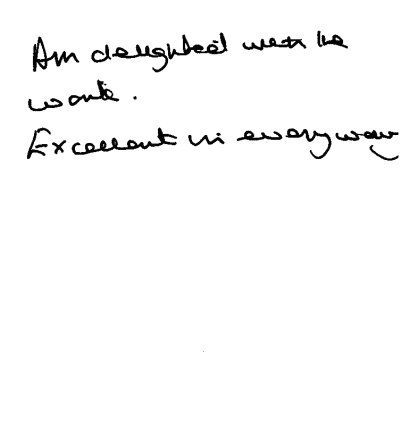 Am delighted with the
work.
Excellent in every way